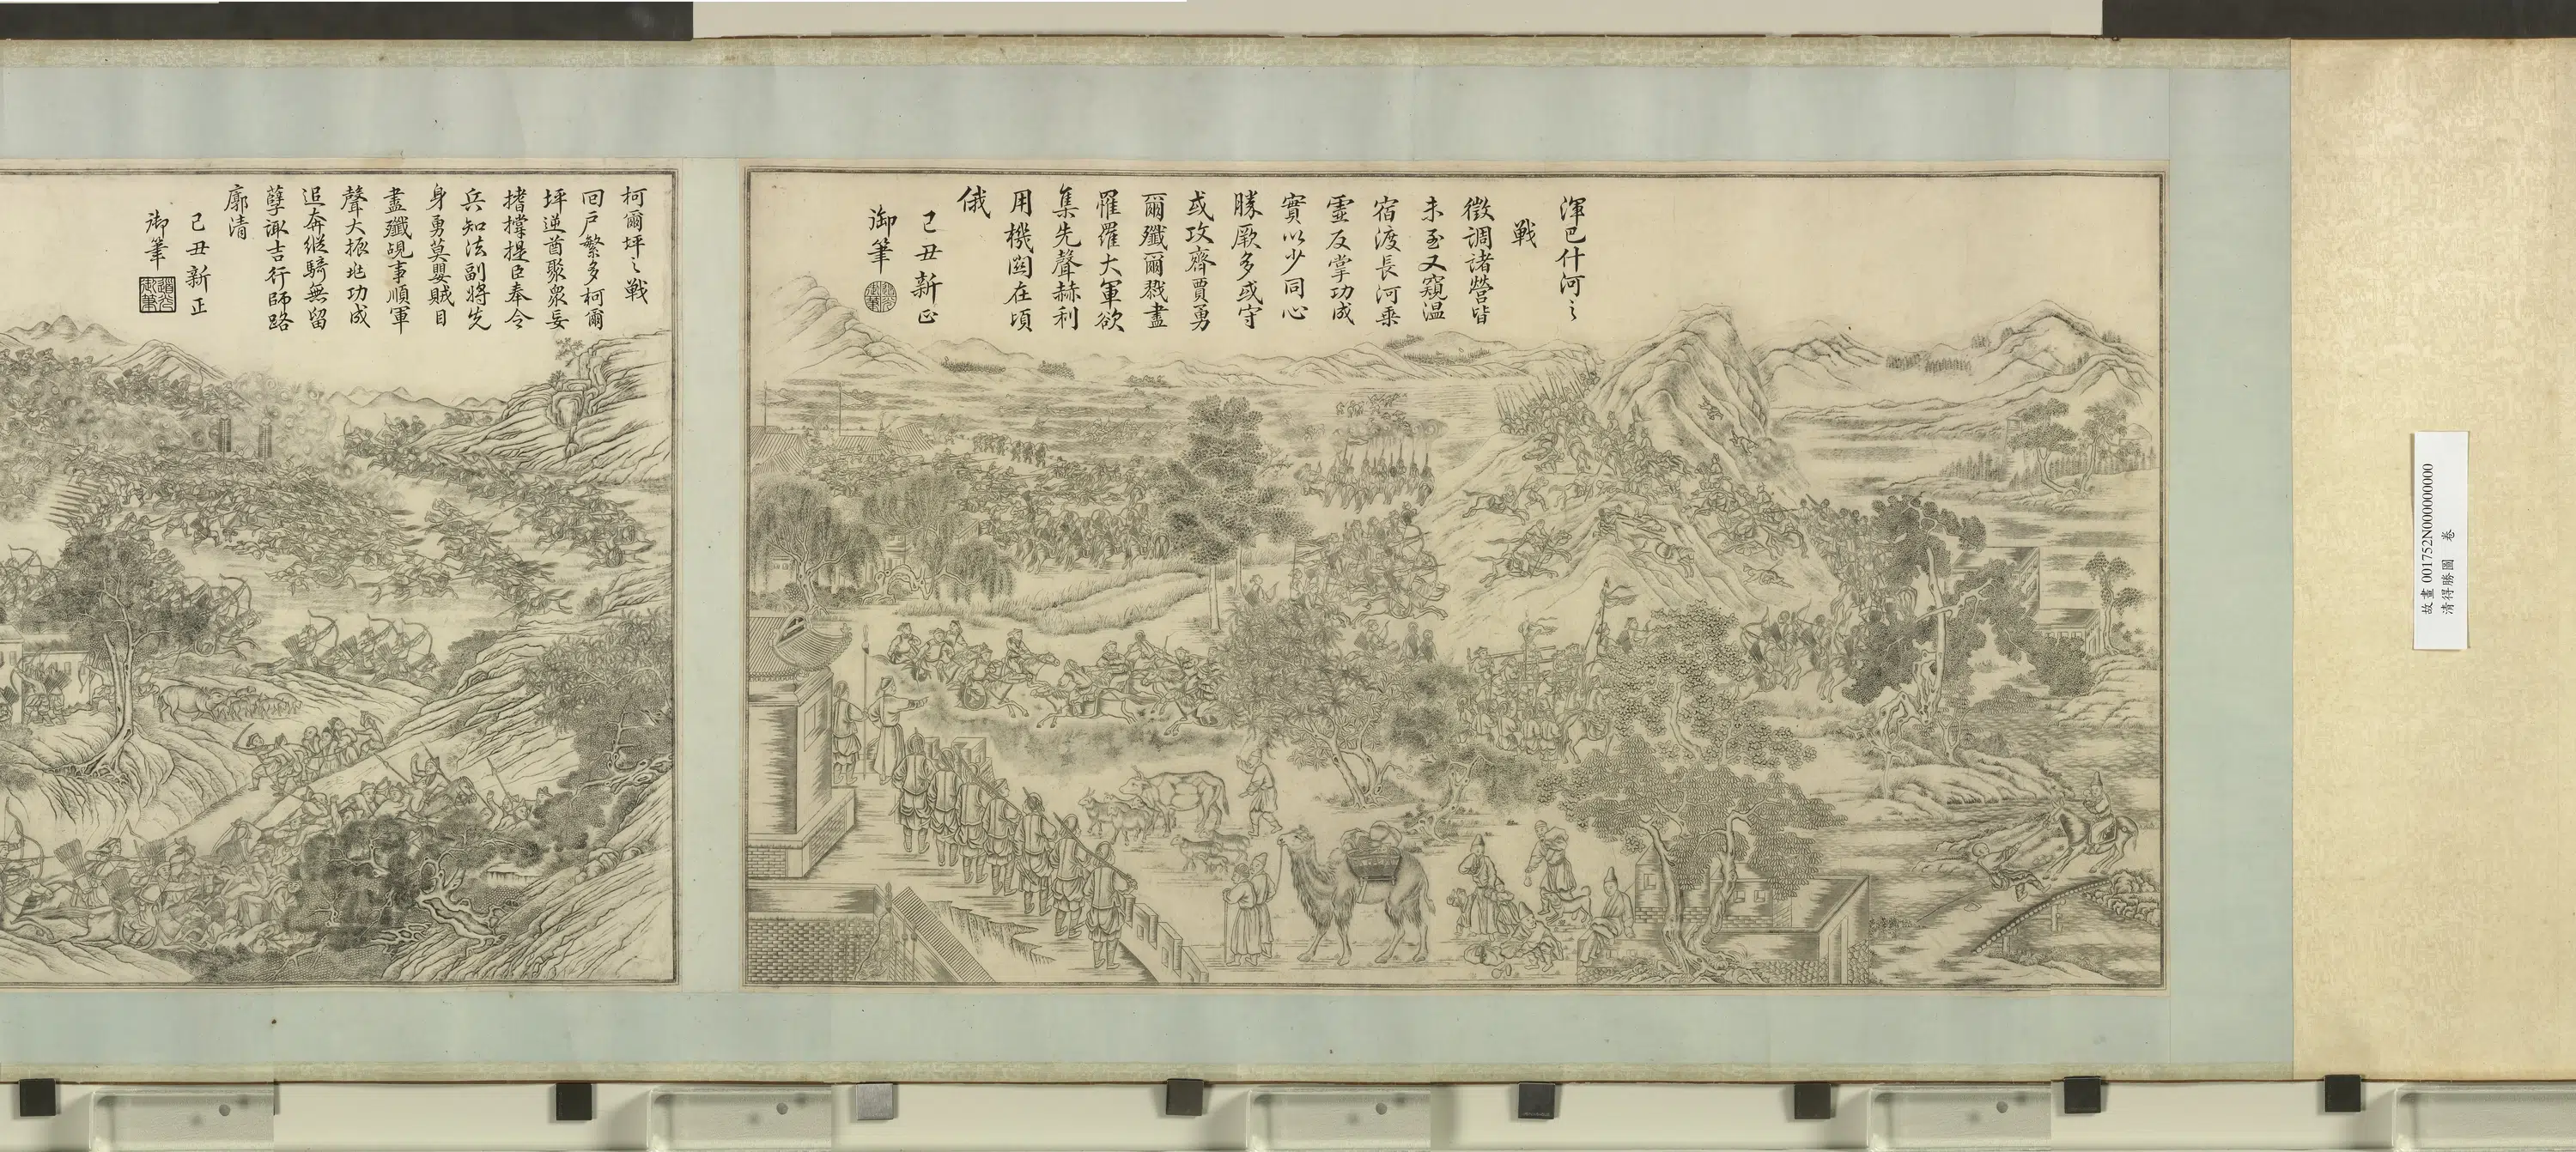 故畫 001752N000000000
清得勝圖　卷
渾巴什河之
戰
徵調諸營皆
未至又窺溫
宿渡長河乘
靈反掌功成
實以少同心
勝厥多或守
或攻齊賈勇
爾殲爾戮盡
罹羅大軍欲
集先聲赫利
用機關在頃
俄
己丑新正
御筆
柯爾坪之戰
回戶繁多柯爾
坪逆酋聚眾妄
撐提臣奉令
兵知法副將先
身勇莫嬰賊目
盡殲覘事順軍
聲大振兆功成
追奔縱騎無留
孽諏吉行師路
廓清
己丑新正
御筆